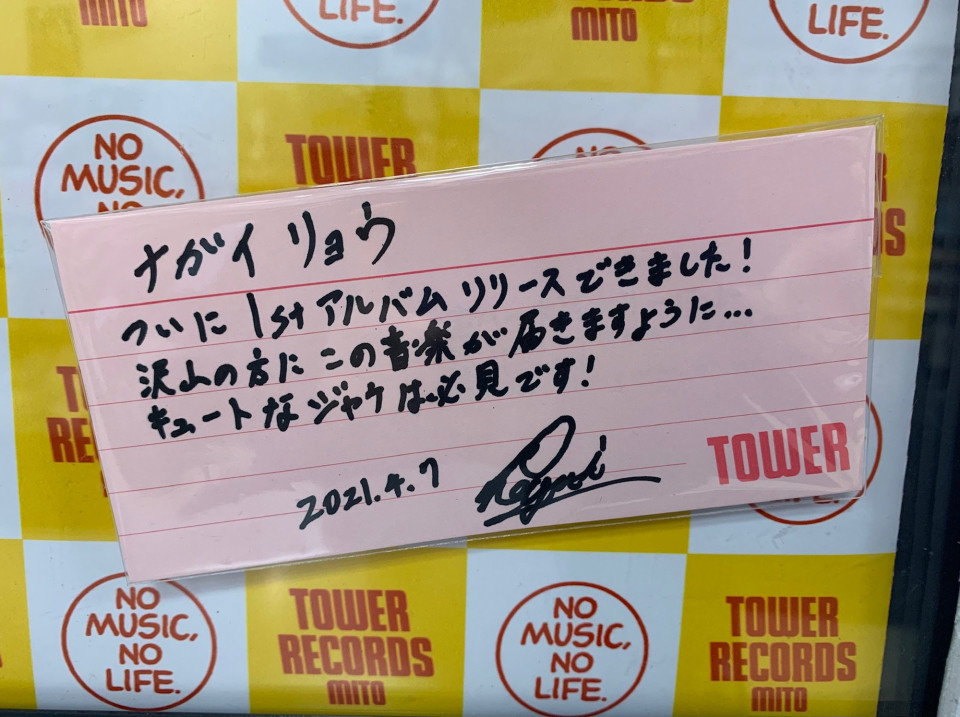 MITO
NO MUSIC,
LIFE.
TOWER
RECORDS
MITO
LIFE.
NO
MUSIC,
NO
TOWER
ナガイ リョウ
ついに 1st アルバム リリースできました!
沢山の方に この音楽が 届きますように...
キュートな ジャケは必見です!
2021.4.7
TOWER
NO
MUSIC,
NO
LIFE.
TOWER
RECORDS
MITO
NO
MUSIC,
NO
LIFE.
TOWER
RECORDS
MITO